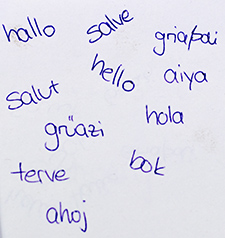 hallo
salve
griaßdi
salut
hello
aiya
grüazi
hola
terve
bok
ahoj